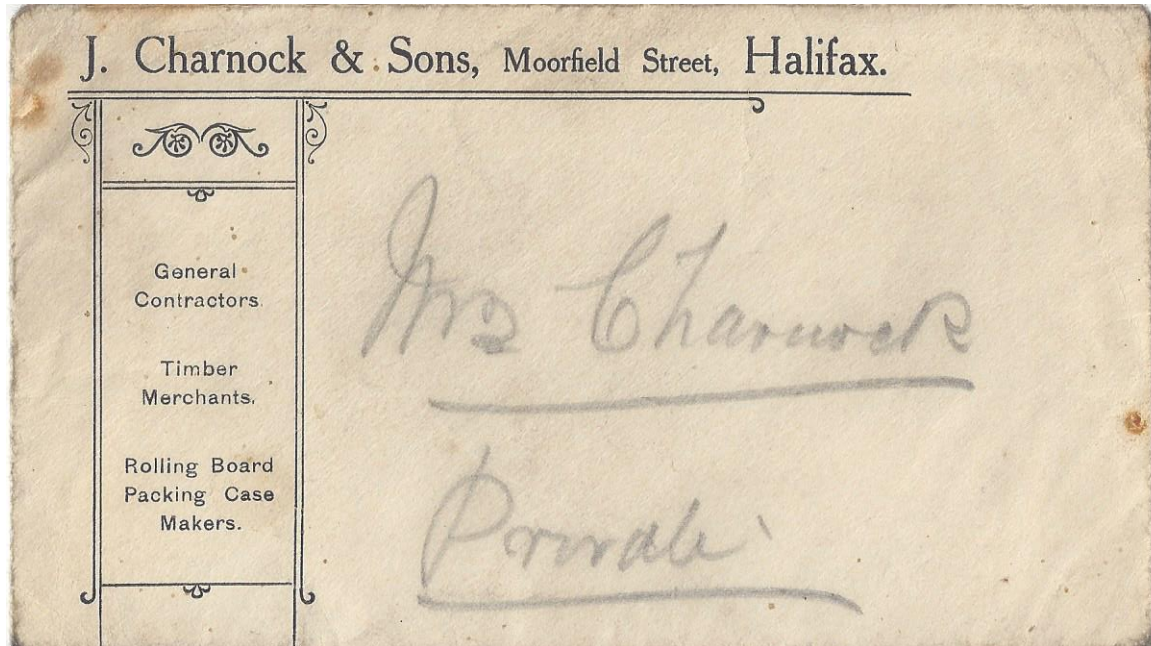 J. Charnock & Sons, Moorfield Street, Halifax.
General
Contractors.
Timber
Merchants.
Rolling Board
Packing Case
Makers.
Mrs Charnock
Private